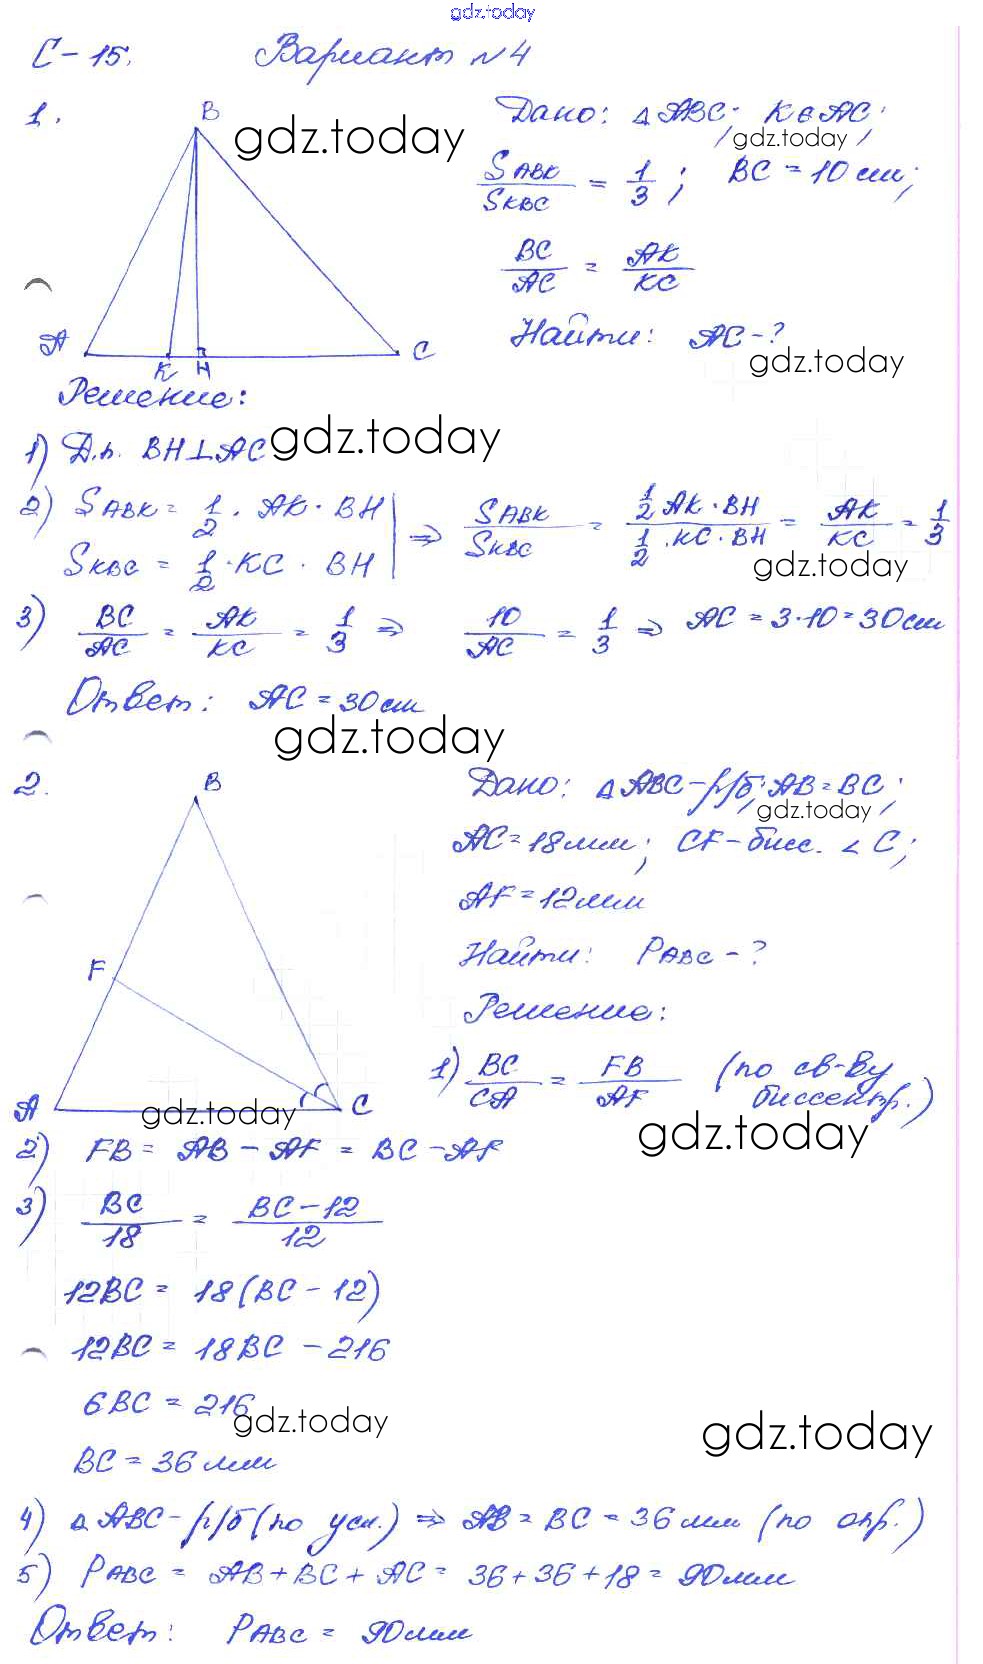 gdz.today
С-15. Вариант №4
1.
B
A
K H
C
gdz.today
Дано: △ABC; K∈AC;
gdz.today
S_ABK / S_KBC = 1/3; BC = 10 см;
BC/AC = AK/KC
Найти: AC - ?
gdz.today
Решение:
1) Д.п. BH⊥AC
gdz.today
2) S_ABK = 1/2 · AK · BH
S_KBC = 1/2 · KC · BH
⇒ S_ABK / S_KBC = (1/2 AK · BH) / (1/2 · KC · BH) = AK/KC = 1/3
gdz.today
3) BC/AC = AK/KC = 1/3 ⇒ 10/AC = 1/3 ⇒ AC = 3·10 = 30 см
Ответ: AC = 30 см
gdz.today
2.
B
F
A
C
Дано: △ABC - р/б; AB = BC;
gdz.today
AC = 18 мм; CF - бисс. ∠C;
AF = 12 мм
Найти: P_ABC - ?
Решение:
1) BC/CA = FB/AF (по св-ву биссектр.)
gdz.today
gdz.today
2) FB = AB - AF = BC - AF
3) BC/18 = (BC - 12)/12
12BC = 18(BC - 12)
12BC = 18BC - 216
6BC = 216
gdz.today
gdz.today
BC = 36 мм
4) △ABC - р/б (по усл.) ⇒ AB = BC = 36 мм (по опр.)
5) P_ABC = AB + BC + AC = 36 + 36 + 18 = 90 мм
Ответ: P_ABC = 90 мм